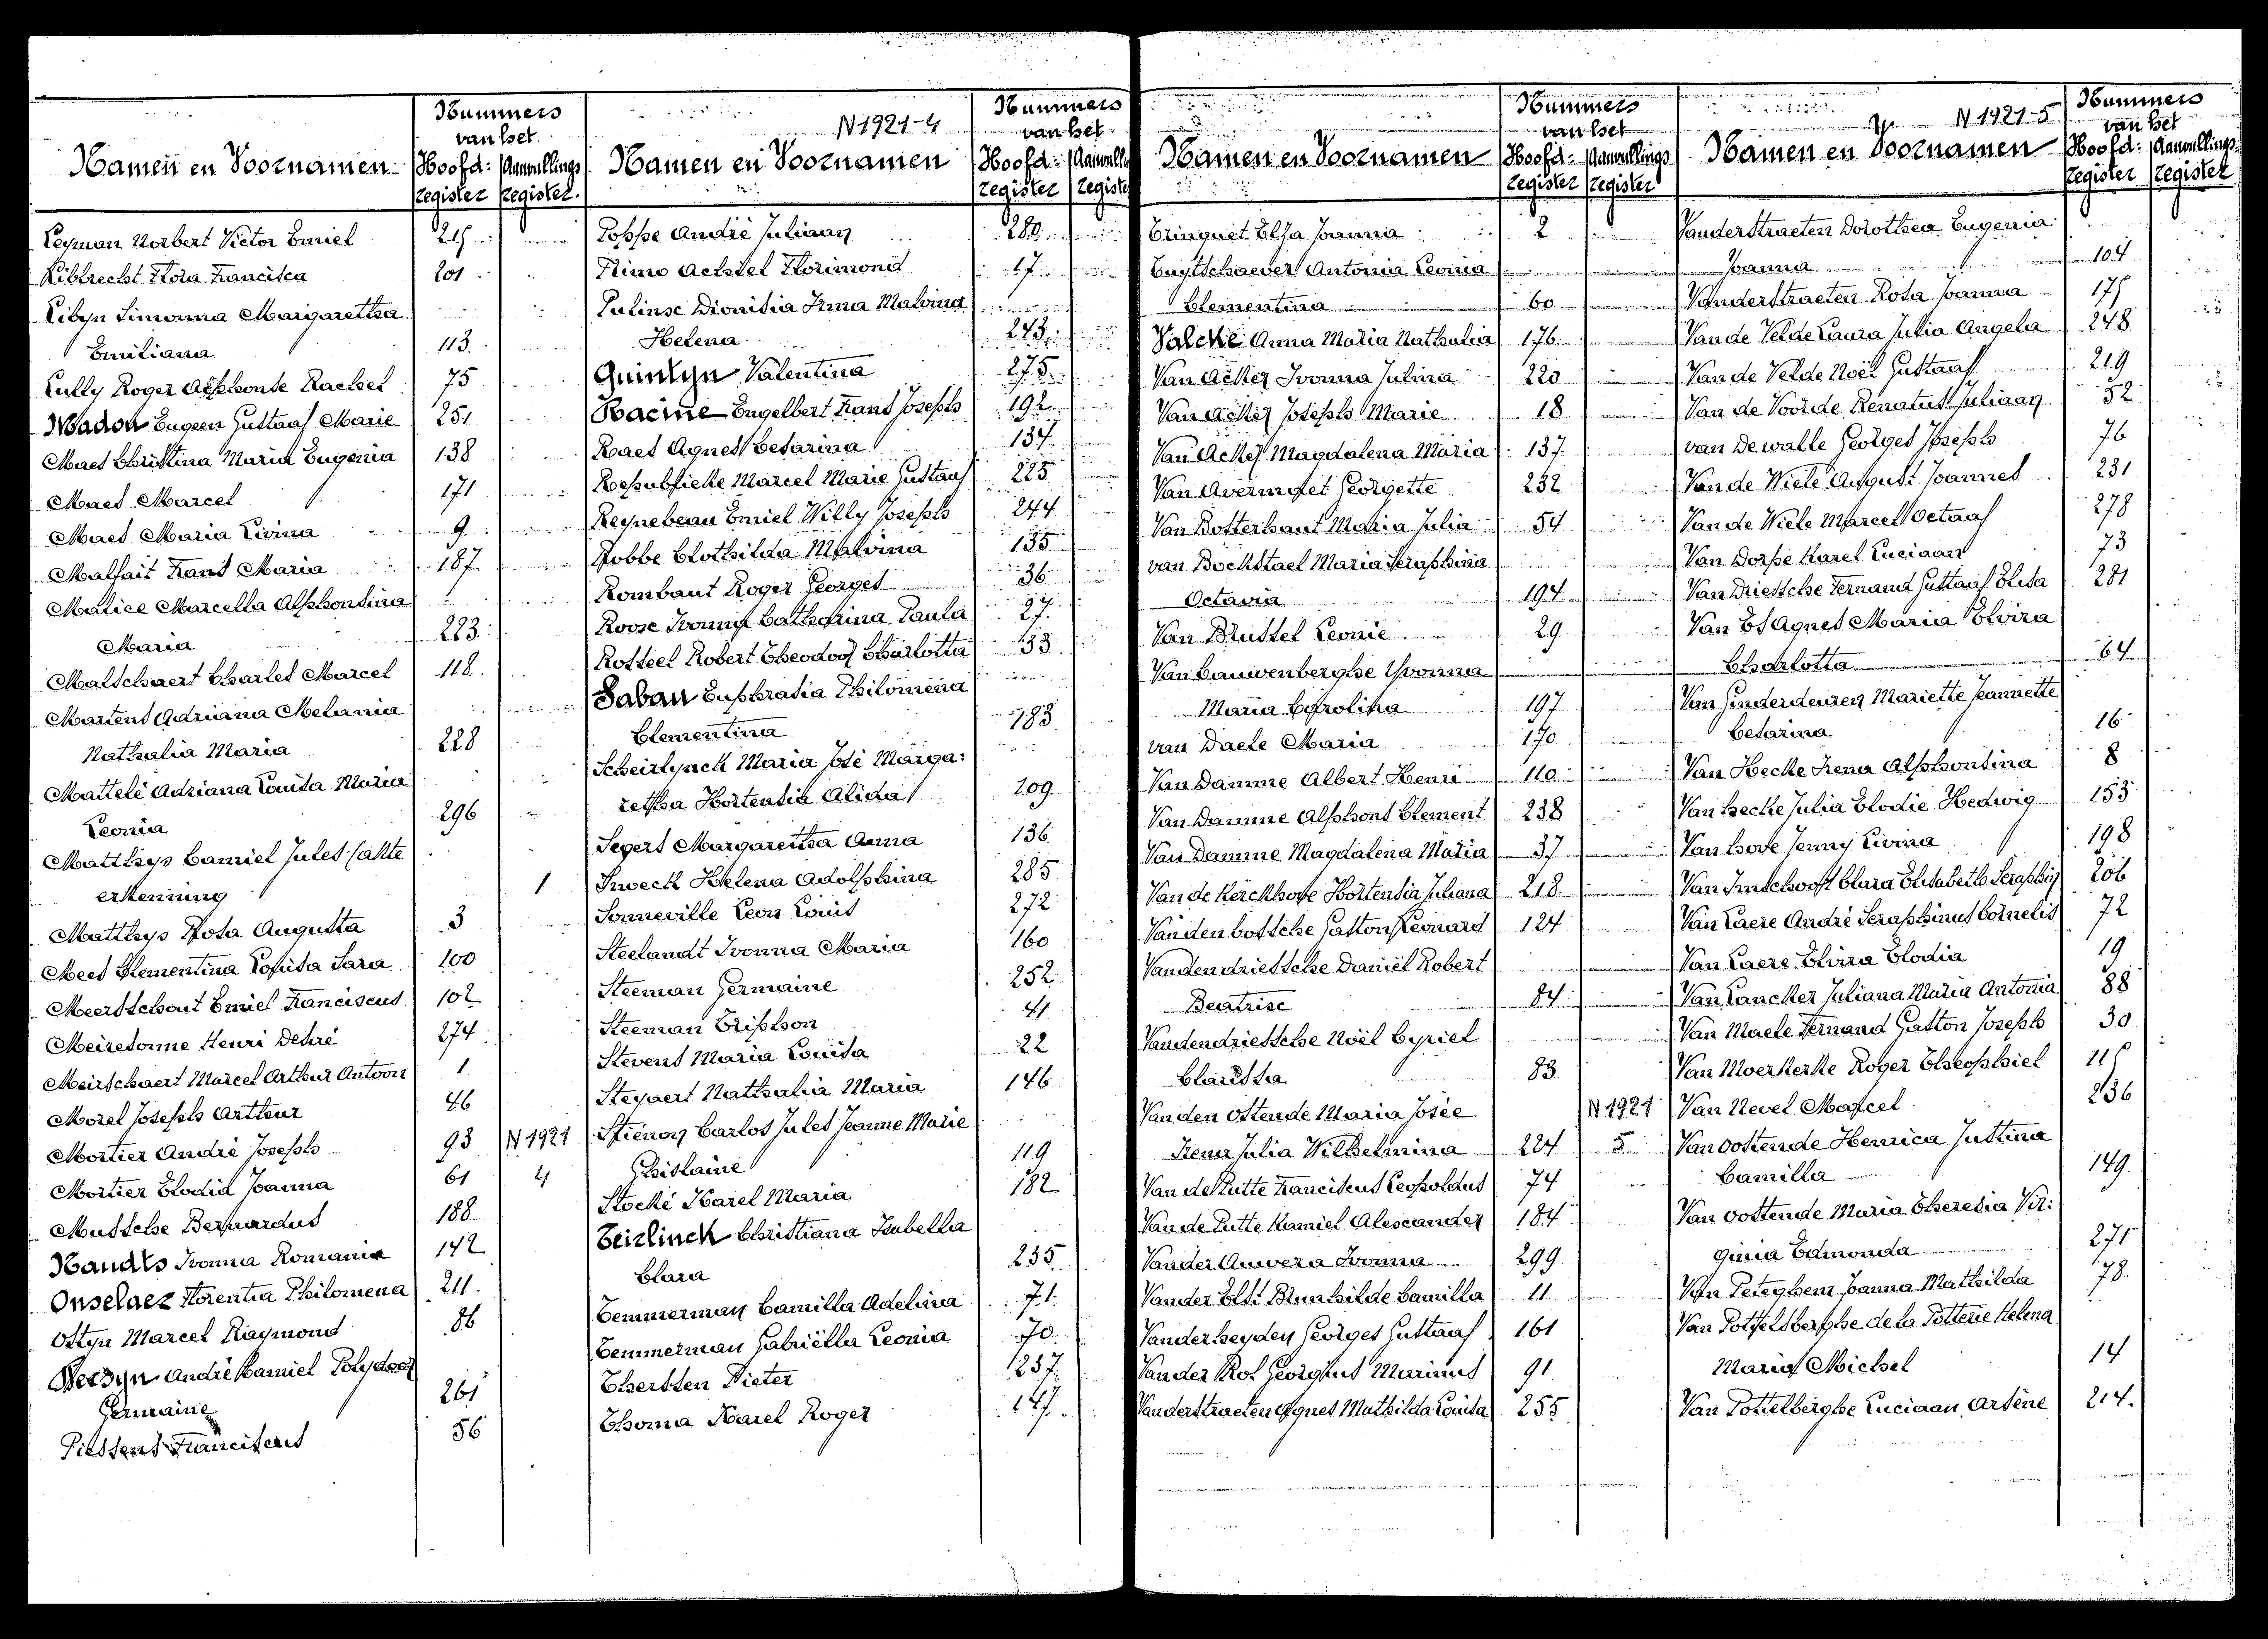 Nummers
van het
Namen en Voornamen Hoofd: Aanvullings
register register
Leyman Norbert Victor Emiel 215
Libbrecht Flora Francisca 201
Libyn Simonna Margaretha
Emiliana 113
Lully Roger Alphonse Rachel 75
Madon Eugeen Gustaaf Marie 251
Maes Christina Maria Eugenia 138
Maes Marcel 171
Maes Maria Livina 9
Malfait Frans Maria 187
Malice Marcella Alphonsina
Maria 223
Malschaert Charles Marcel 118
Martens Adriana Melania
Nathalia Maria 228
Mattelé Adriana Louisa Maria
Leonia 296
Matthys Camiel Jules (akte
erkenning 1
Matthys Rosa Augusta 3
Mees Clementina Louisa Sara 100
Meerschout Emiel Franciscus 102
Meiresonne Henri Desiré 274
Meirschaert Marcel Arthur Antoon 1
Morel Joseph Arthur 46
Mortier André Joseph 93 N 1921
Mortier Elodia Joanna 61 4
Mussche Bernardus 188
Naudts Ivonna Romania 142
Onselaer Florentia Philomena 211
Ostyn Marcel Raymond 86
Persyn André Camiel Polydoor
Germaine 261
Piessens Franciscus 56
N 1921-4
Nummers
van het
Namen en Voornamen Hoofd: Aanvull
register registe
Poppe André Juliaan 280
Primo Achiel Florimond 17
Pulinse Dionisia Irma Malvina
Helena 243
Quintyn Valentina 275
Racine Engelbert Frans Joseph 192
Raes Agnes Cesarina 134
Respubliek Marcel Marie Gustaaf 225
Reynebeau Emiel Willy Joseph 244
Robbe Clothilda Malvina 135
Rombaut Roger Georges 36
Roose Ivonna Catharina Paula 27
Rottiel Robert Theodoor Charlotta 133
Saban Euphrasia Philomena
Clementina 183
Scheirlynck Maria José Marga:
retha Hortensia Alida 209
Segers Margaretha Anna 136
Snoeck Helena Adolphina 285
Sonneville Leon Louis 272
Steelandt Ivonna Maria 160
Steeman Germaine 252
Steeman Triphon 41
Stevens Maria Louisa 22
Steyaert Nathalia Maria 146
Stiénon Carlos Jules Jeanne Marie
Ghislaine 119
Stocké Karel Maria 182
Teirlinck Christiana Isabella
Clara 235
Temmerman Camilla Adelina 71
Temmerman Gabriëlla Leonia 70
Thersten Pieter 237
Thoma Karel Roger 147
Nummers
van het
Namen en Voornamen Hoofd: Aanvullings
register register
Trinquet Elsa Joanna 2
Tuytschaever Antonia Leonia
Clementina 60
Valcke Anna Maria Nathalia 176
Van Acker Ivonna Julina 220
Van Acker Joseph Marie 18
Van Acker Magdalena Maria 137
Van Avermaet Georgette 232
Van Botterhaut Maria Julia 54
van Bockstael Maria Seraphina
Octavia 194
Van Brussel Leonie 29
Van Cauwenberghe Yvonna
Maria Carolina 197
van Daele Maria 170
Van Damme Albert Henri 110
Van Damme Alphons Clement 238
Van Damme Magdalena Maria 37
Van de Kerckhove Hortensia Juliana 218
Van den bossche Gaston Leonard 124
Vandendriessche Daniël Robert
Beatrise 84
Vandendriessche Noël Cyriel
Claritsa 83
Van den Ostende Maria Josée N 1921
Irena Julia Wilhelmina 224 5
Van de Putte Franciscus Leopoldus 74
Van de Putte Kamiel Alexander 184
Vander Auwera Ivonna 299
Vander Elst Brunhilde Camilla 11
Vanderheyden Georges Gustaaf 161
Vander Rol Georgius Marinus 91
Vanderstraeten Agnes Mathilda Louisa 255
N 1921-5
Nummers
van het
Namen en Voornamen Hoofd: Aanvullings
register register
Vanderstraeten Dorothea Eugenia
Joanna 104
Vanderstraeten Rosa Joanna 175
Van de Velde Laura Julia Angela 248
Van de Velde Noël Gustaaf 219
Van de Voorde Renatus Juliaan 52
van De walle Georges Joseph 76
Van de Wiele August Joannes 231
Van de Wiele Marcel Octaaf 278
Van Dorpe Karel Luciaan 73
Van Driessche Fernand Gustaaf Elisa 281
Van Es Agnes Maria Elvira
Charlotta 64
Van Genderdeuren Mariette Jeannette
Cesarina 16
Van Hecke Irena Alphonsina 8
Van hecke Julia Elodie Hedwig 153
Van hove Jenny Livina 198
Van Imschoot Clara Elisabeth Seraphin 206
Van Laere André Seraphinus Cornelis 72
Van Laere Elvira Elodia 19
Van Lancker Juliana Maria Antonia 88
Van Maele Fernand Gaston Joseph 30
Van Moerkerke Roger Theophiel 115
Van Nevel Marcel 236
Van oostende Henrica Justina
Camilla 149
Van oostende Maria Theresia Vir:
ginia Edmonda 271
Van Peteghem Joanna Mathilda 78
Van Pottelsberghe de la Potterie Helena
Maria Michel 14
Van Pottelberghe Luciaan Arsène 214.